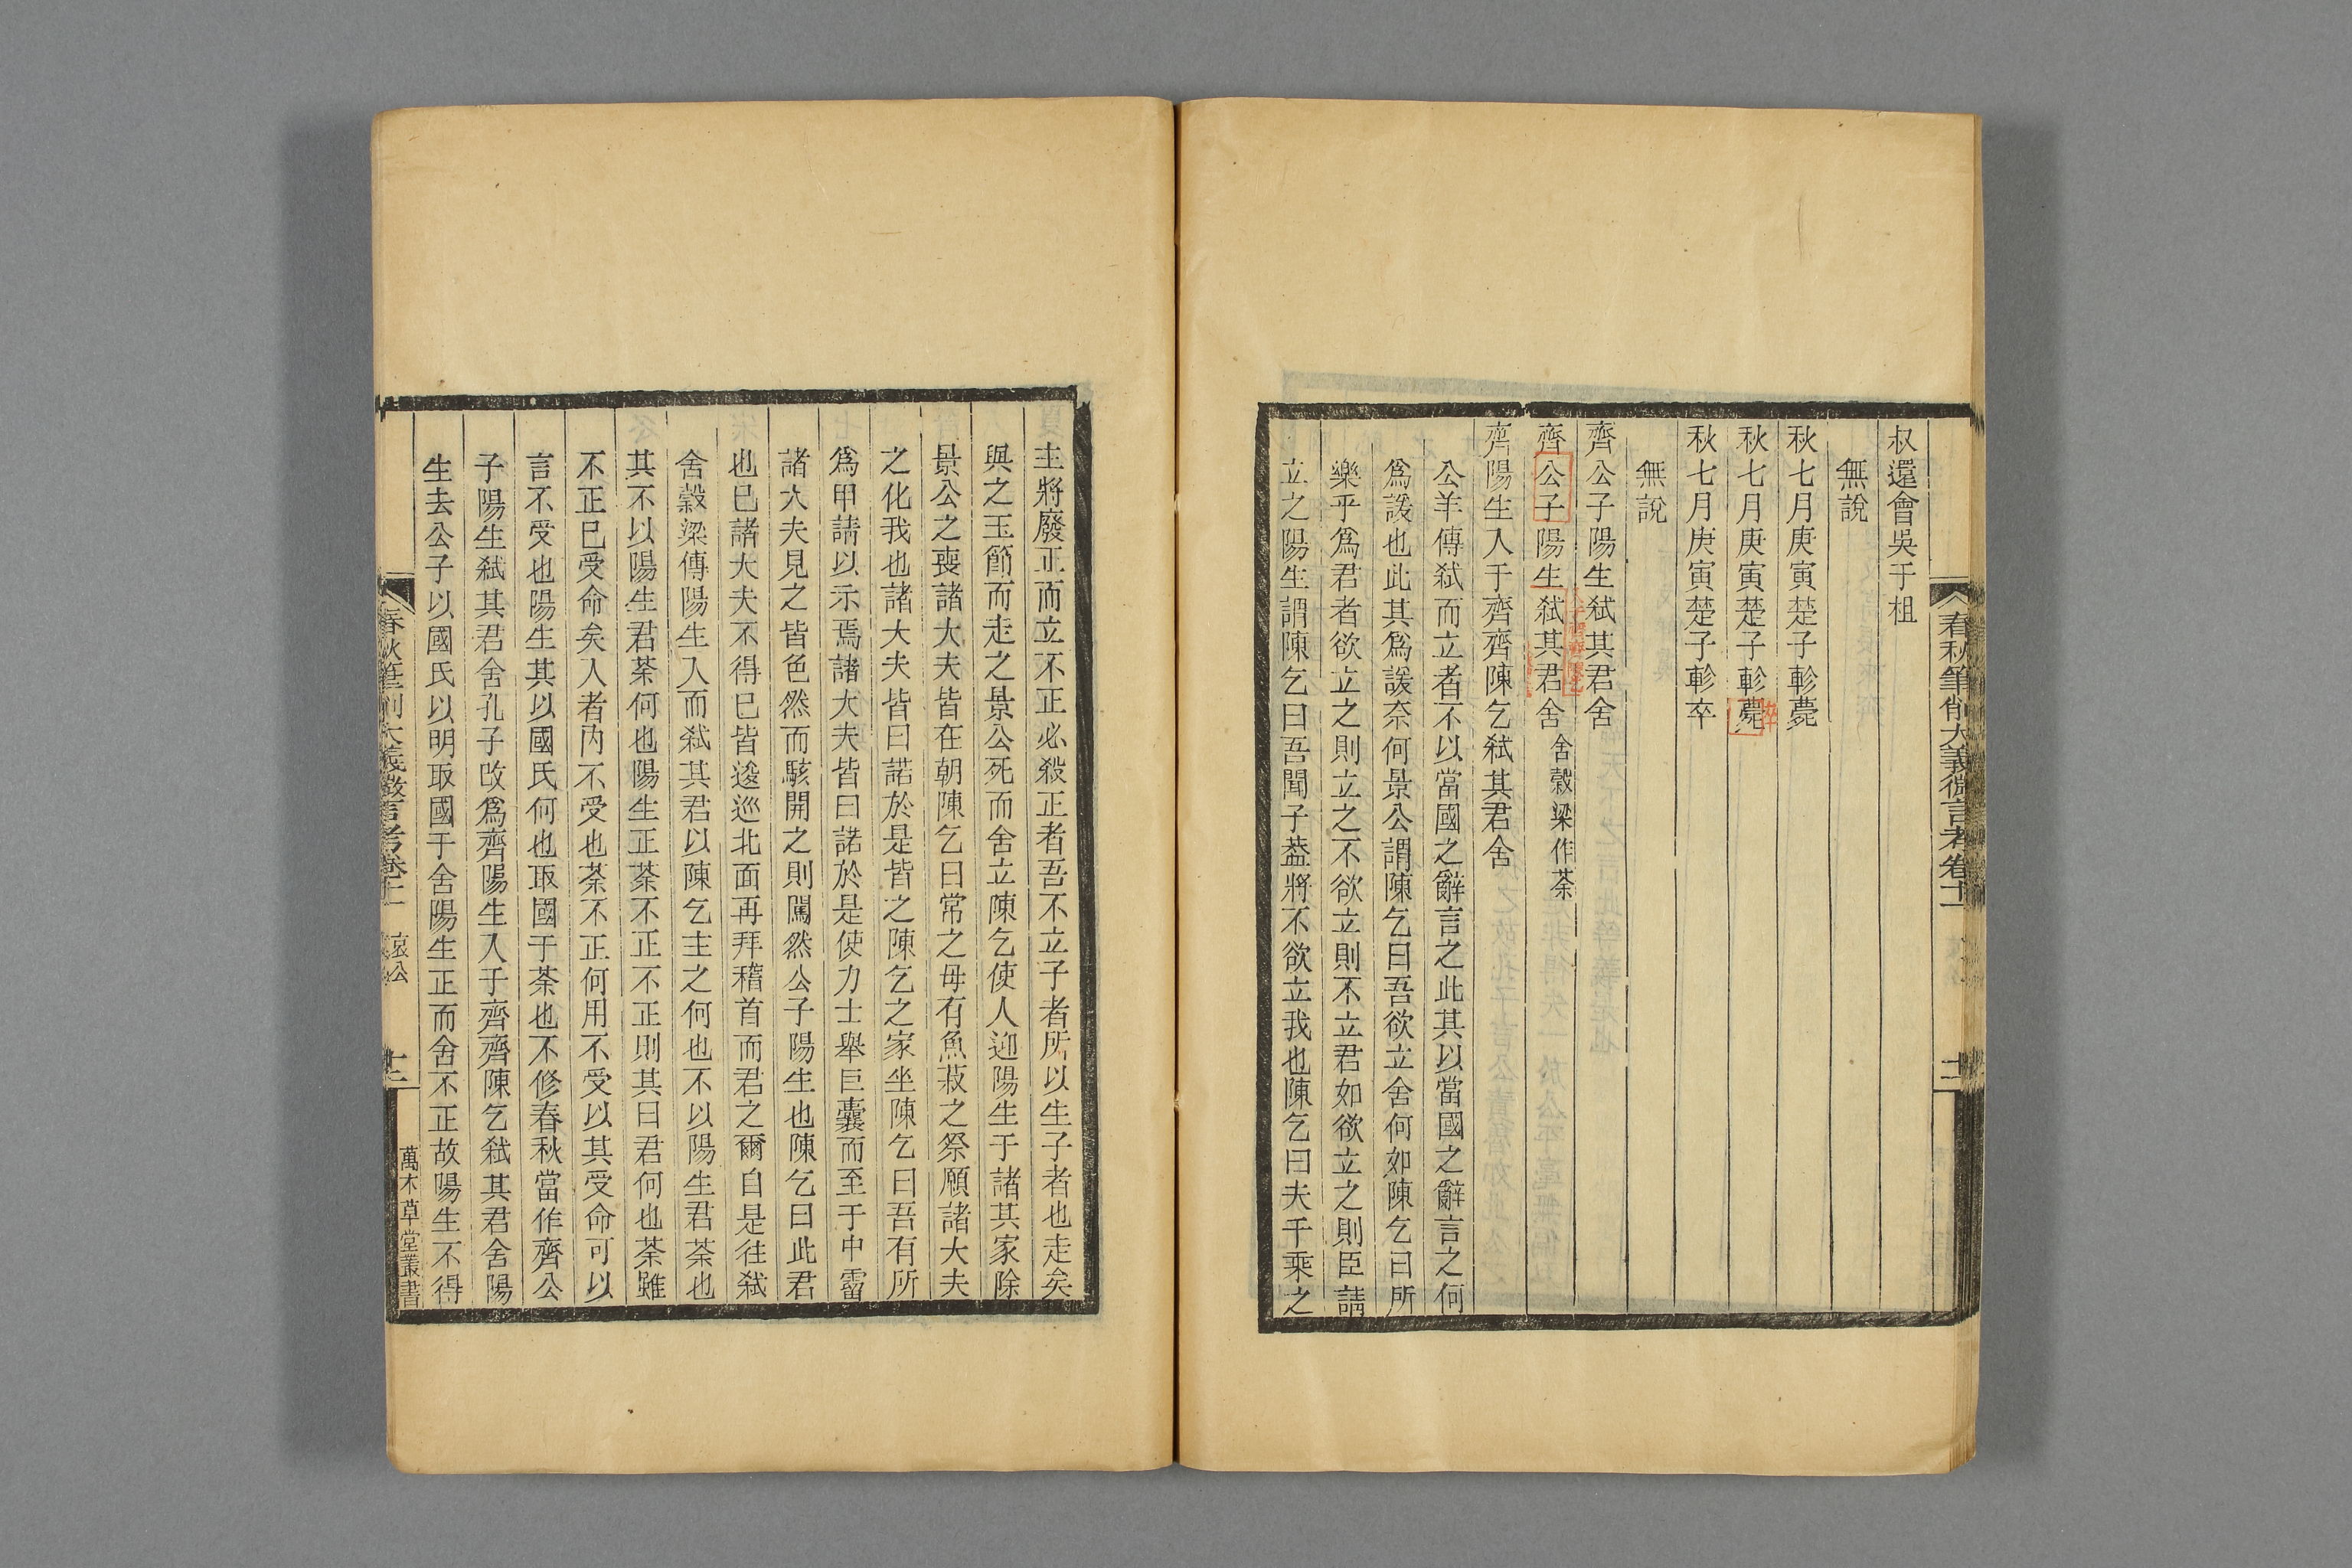 春秋筆削大義微言考卷十一
十二
叔還會吳于柤
無說
秋七月庚寅楚子軫薨
秋七月庚寅楚子軫薨
卒
秋七月庚寅楚子軫卒
無說
齊公子陽生弒其君舍
齊公子陽生弒其君舍 舍穀梁作荼
齊陽生入于齊齊陳乞弒其君舍
公羊傳弒而立者不以當國之辭言之此其以當國之辭言之何
爲諼也此其爲諼奈何景公謂陳乞曰吾欲立舍何如陳乞曰所
樂乎爲君者欲立之則立之不欲立則不立君如欲立之則臣請
立之陽生謂陳乞曰吾聞子葢將不欲立我也陳乞曰夫千乘之
主將廢正而立不正必殺正者吾不立子者所以生子者也走矣
與之玉節而走之景公死而舍立陳乞使人迎陽生于諸其家除
景公之喪諸大夫皆在朝陳乞曰常之母有魚菽之祭願諸大夫
之化我也諸大夫皆曰諾於是皆之陳乞之家坐陳乞曰吾有所
爲甲請以示焉諸大夫皆曰諾於是使力士舉巨囊而至于中霤
諸大夫見之皆色然而駭開之則闖然公子陽生也陳乞曰此君
也已諸大夫不得已皆逡巡北面再拜稽首而君之爾自是往弒
舍穀梁傳陽生入而弒其君以陳乞主之何也不以陽生君荼也
其不以陽生君荼何也陽生正荼不正不正則其曰君何也荼雖
不正已受命矣入者內不受也荼不正何用不受以其受命可以
言不受也陽生其以國氏何也取國于荼也不修春秋當作齊公
子陽生弒其君舍孔子改爲齊陽生入于齊齊陳乞弒其君舍陽
生去公子以國氏以明取國于舍陽生正而舍不正故陽生不得
春秋筆削大義微言考卷十一 哀公
十二
萬木草堂叢書